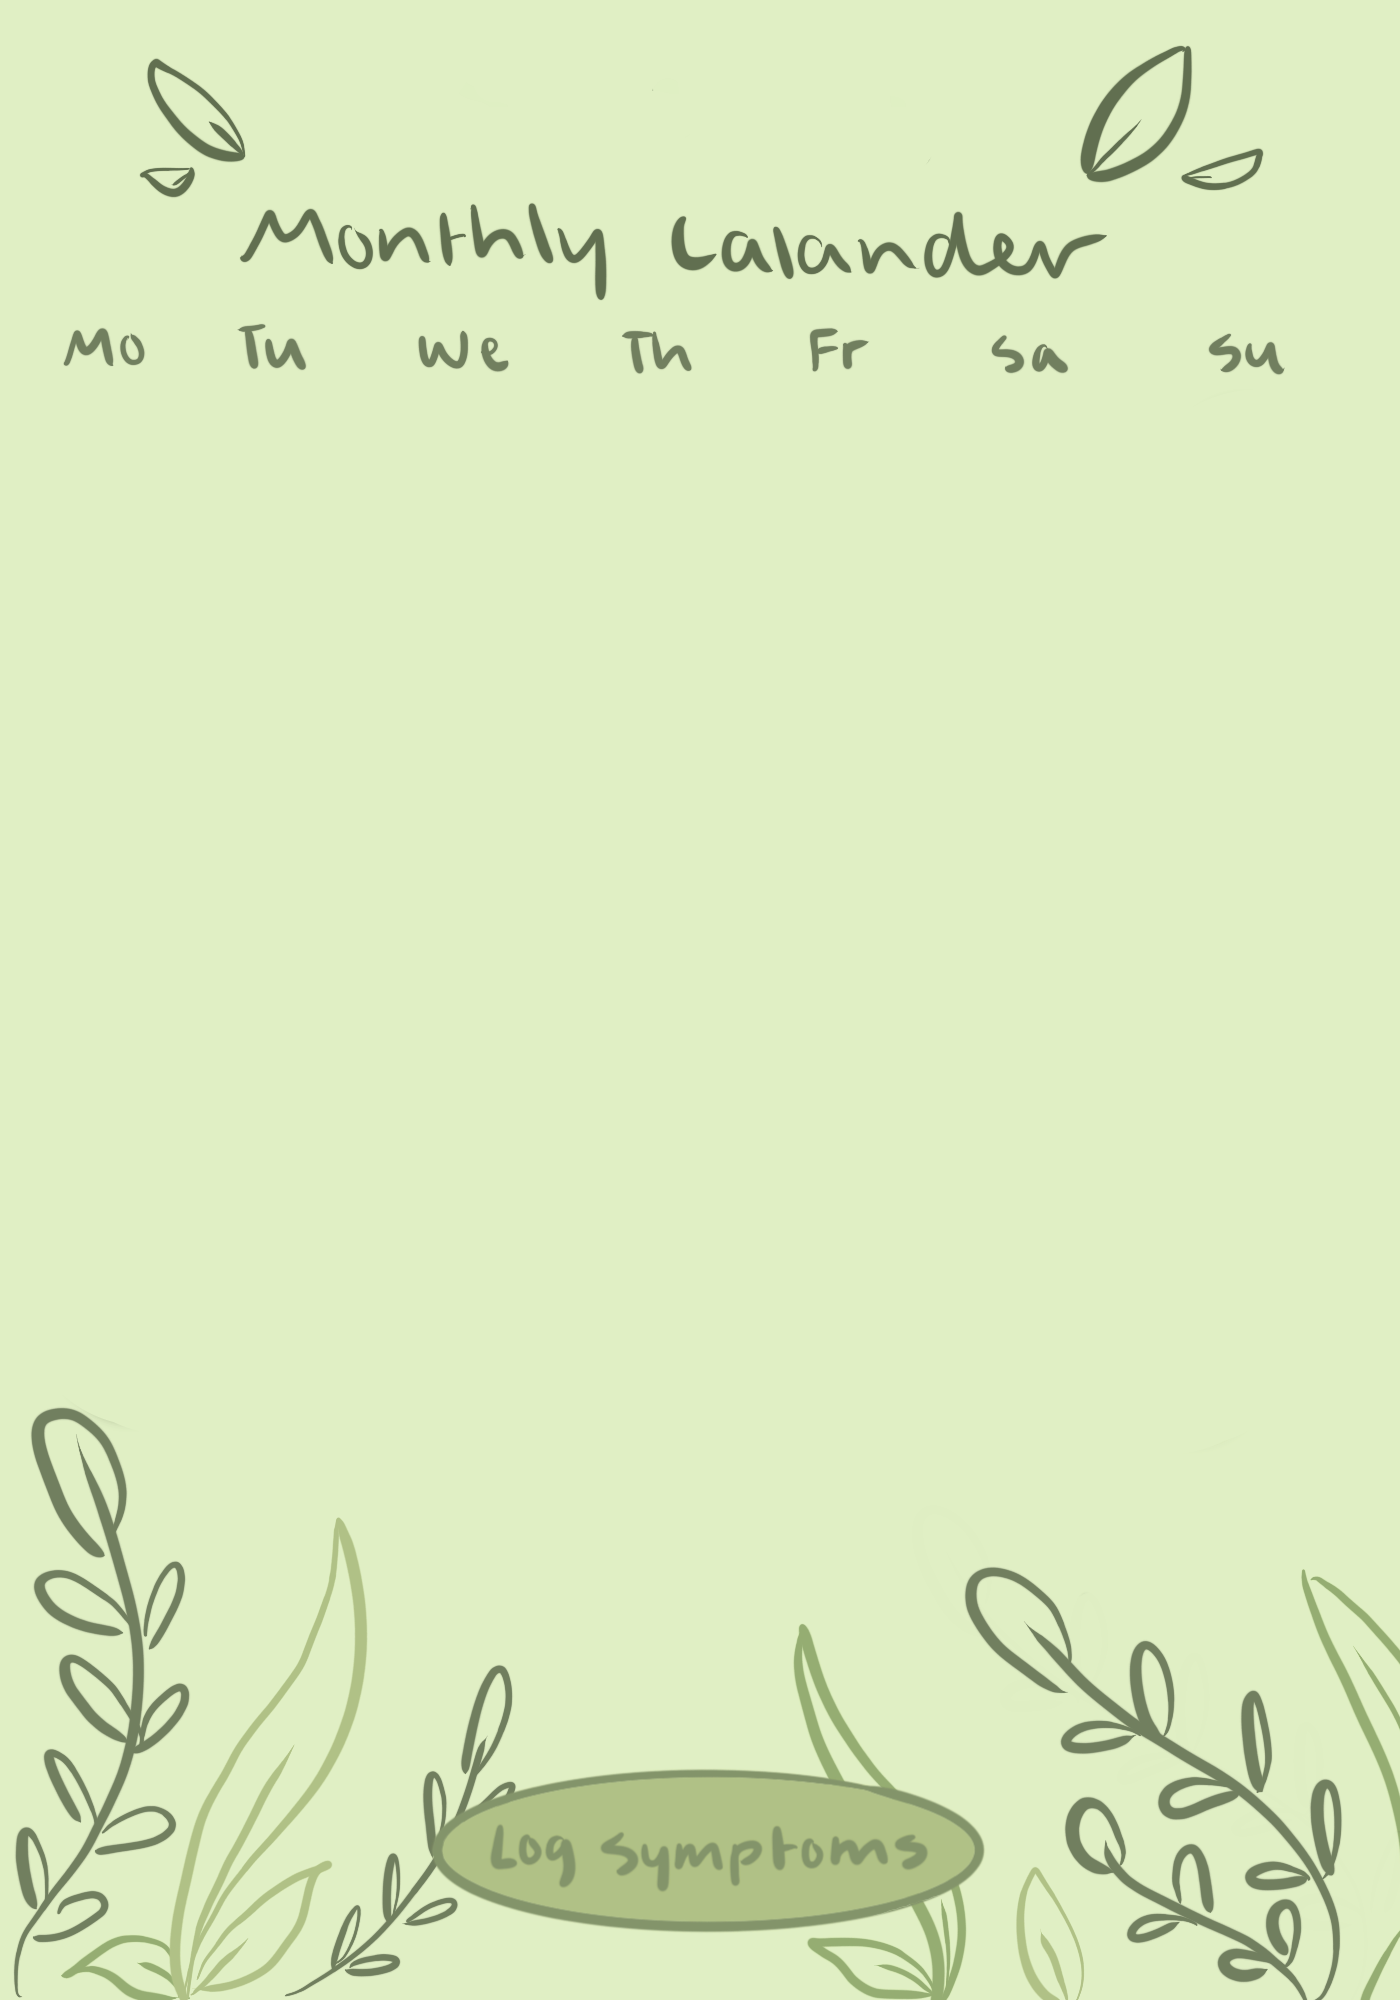 Monthly Calander
Mo Tu We Th Fr Sa Su
Log Symptoms